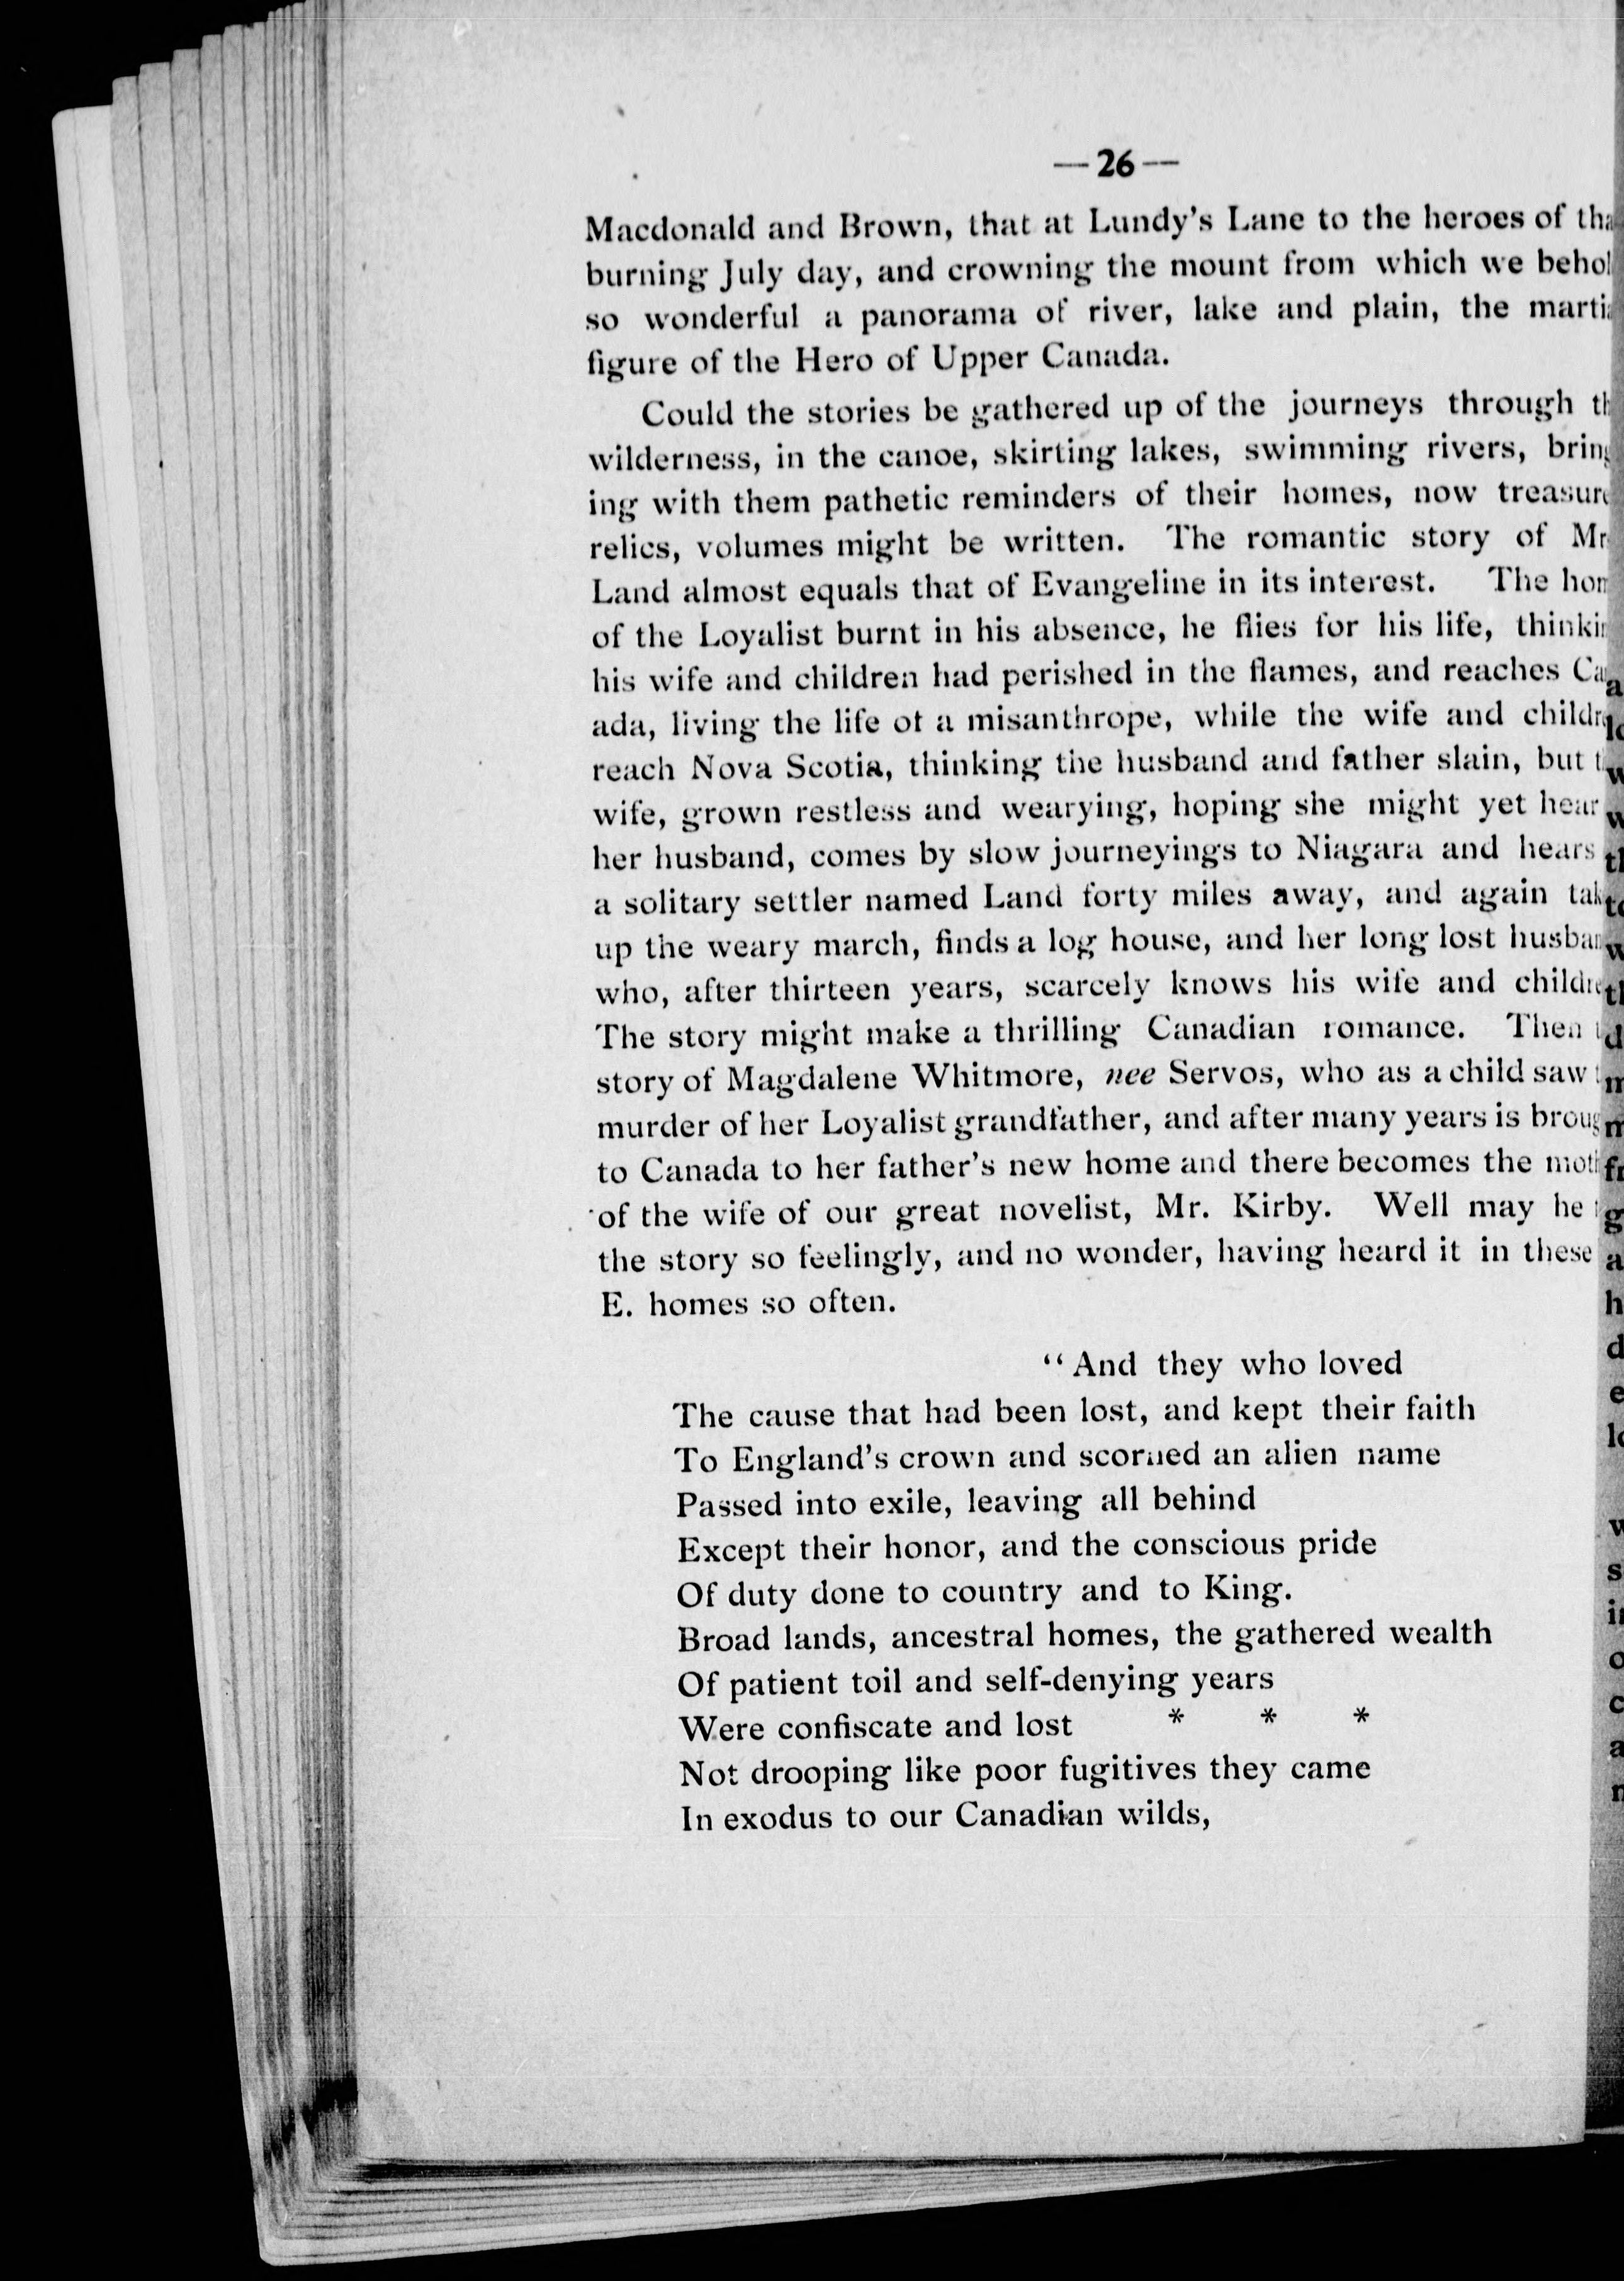 — 26 —
Macdonald and Brown, that at Lundy's Lane to the heroes of tha
burning July day, and crowning the mount from which we behol
so wonderful a panorama of river, lake and plain, the martia
figure of the Hero of Upper Canada.
Could the stories be gathered up of the journeys through th
wilderness, in the canoe, skirting lakes, swimming rivers, bring
ing with them pathetic reminders of their homes, now treasure
relics, volumes might be written. The romantic story of Mr
Land almost equals that of Evangeline in its interest. The hom
of the Loyalist burnt in his absence, he flies for his life, thinkin
his wife and children had perished in the flames, and reaches Can
ada, living the life of a misanthrope, while the wife and childre
reach Nova Scotia, thinking the husband and father slain, but t
wife, grown restless and wearying, hoping she might yet hear
her husband, comes by slow journeyings to Niagara and hears
a solitary settler named Land forty miles away, and again tak
up the weary march, finds a log house, and her long lost husban
who, after thirteen years, scarcely knows his wife and childre
The story might make a thrilling Canadian romance. Then
story of Magdalene Whitmore, nee Servos, who as a child saw
murder of her Loyalist grandfather, and after many years is broug
to Canada to her father's new home and there becomes the moth
of the wife of our great novelist, Mr. Kirby. Well may he
the story so feelingly, and no wonder, having heard it in these
E. homes so often.
"And they who loved
The cause that had been lost, and kept their faith
To England's crown and scorned an alien name
Passed into exile, leaving all behind
Except their honor, and the conscious pride
Of duty done to country and to King.
Broad lands, ancestral homes, the gathered wealth
Of patient toil and self-denying years
Were confiscate and lost * * *
Not drooping like poor fugitives they came
In exodus to our Canadian wilds,